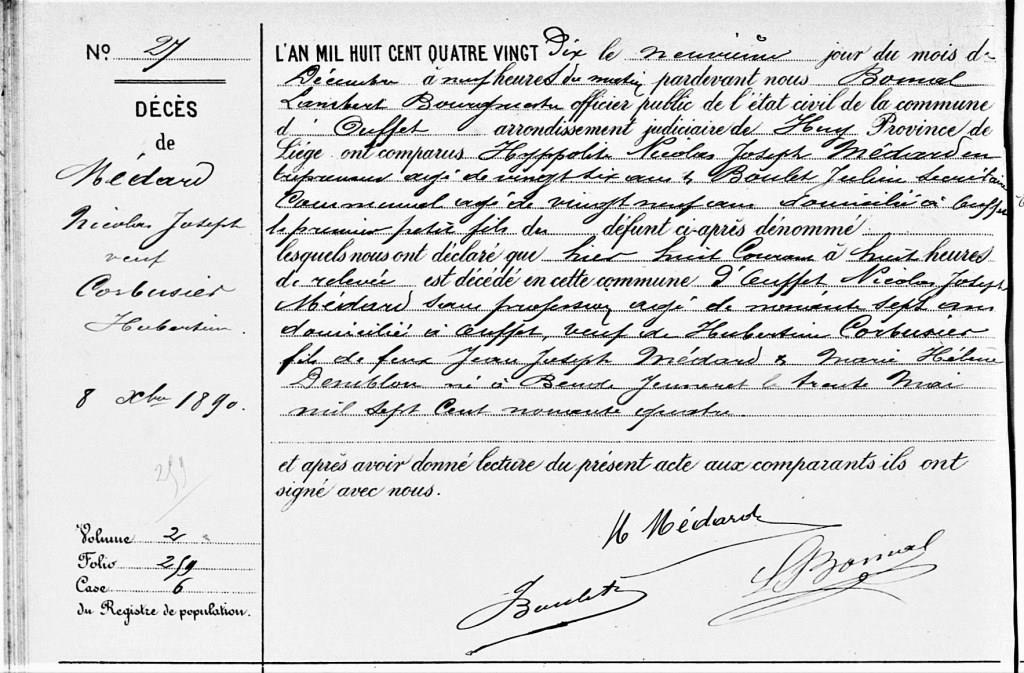 N° 27
DÉCÈS
de
Médard
Nicolas Joseph
veuf
Corbusier
Hubertine.
8 Xbre 1890.
259
Volume 2
Folio 259
Case 6
du Registre de population.
L'AN MIL HUIT CENT QUATRE VINGT Dix le neuvième jour du mois de
Décembre à neuf heures du matin pardevant nous Bonnal
Lambert Bourgmestre officier public de l'état civil de la commune
d'Ouffet arrondissement judiciaire de Huy Province de
Liége ont comparus Hyppolite Nicolas Joseph Médard en
trepreneur agé de vingt six ans & Boulet Julien Secrétaire
Communal agé de vingt neuf ans domicilié à Ouffet
le premier petit fils du défunt ci-après dénommé
lesquels nous ont déclaré que hier huit Courant à huit heures
de relevée est décédé en cette commune d'Ouffet Nicolas Joseph
Médard sans profession agé de nonante sept ans
domicilié à Ouffet, veuf de Hubertine Corbusier
fils de feux Jean Joseph Médard & Marie Hélène
Demblon né à Bende Jenneret le trente Mai
mil sept Cent nonante quatre.
et après avoir donné lecture du présent acte aux comparants ils ont
signé avec nous.
H Médard
J Boulet
L Bonnal